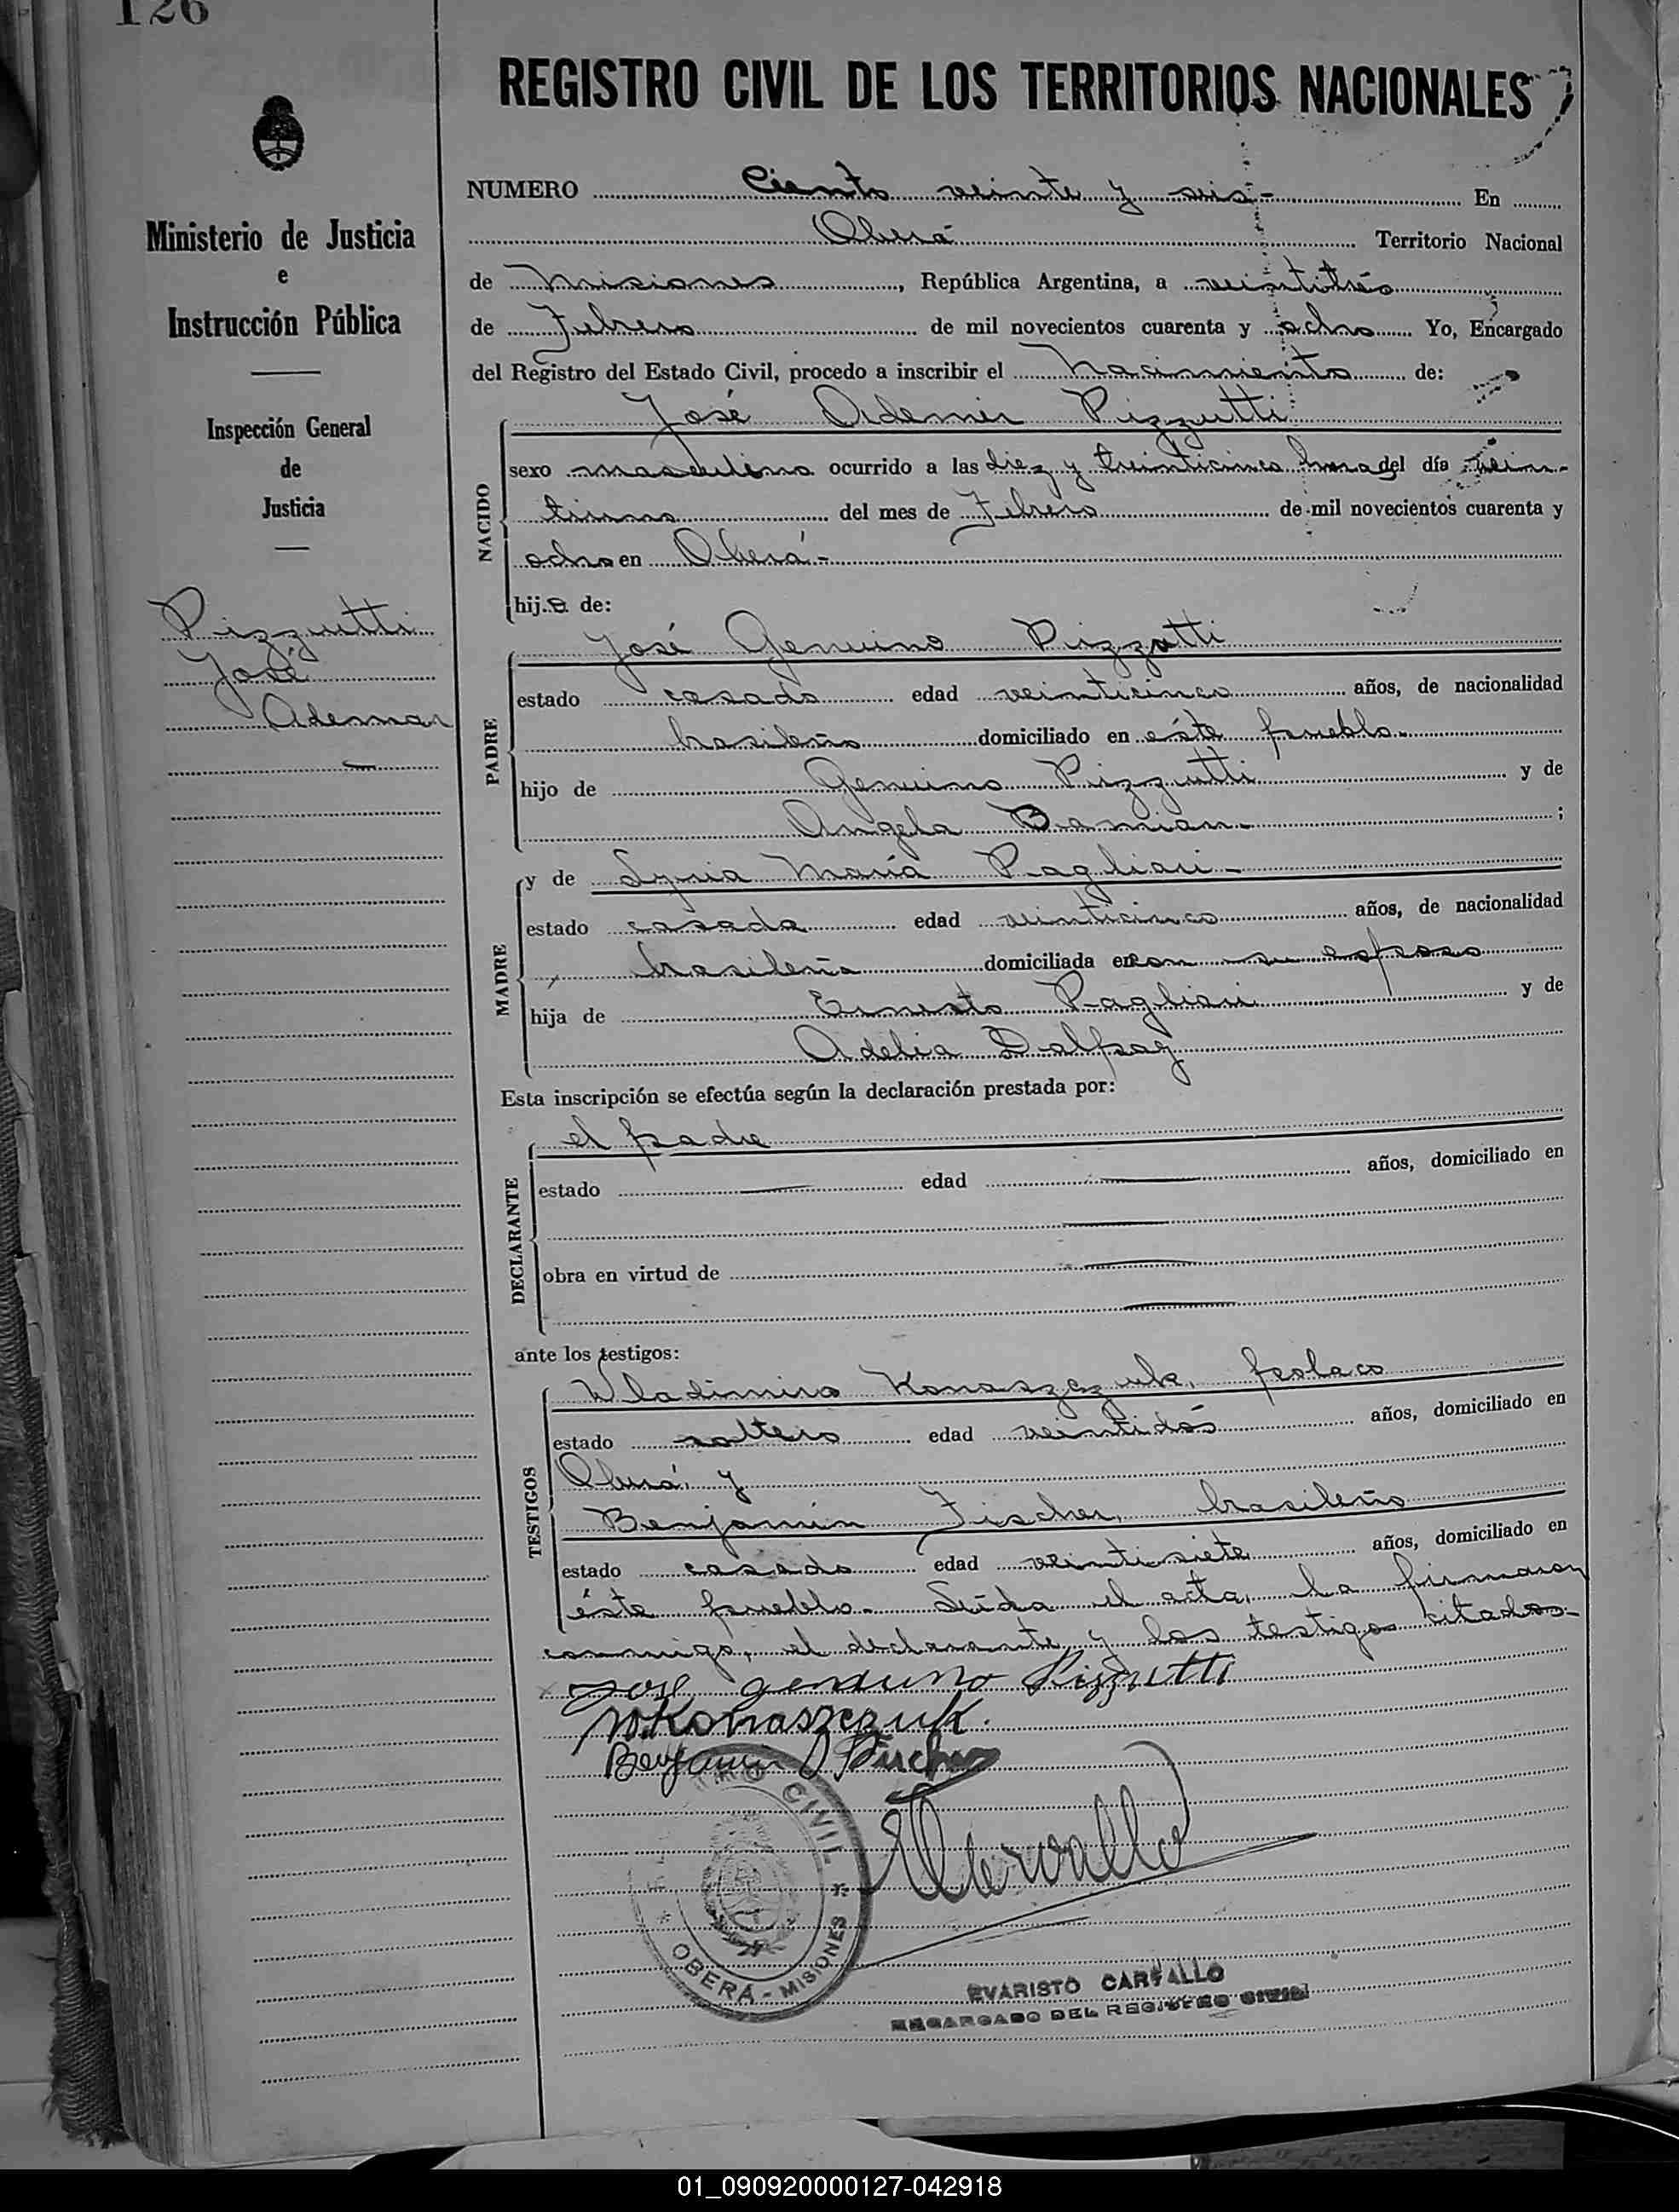 126
REGISTRO CIVIL DE LOS TERRITORIOS NACIONALES
Ministerio de Justicia
e
Instrucción Pública
Inspección General
de
Justicia
Pizzutti
José
Ademar
NUMERO Ciento veinte y seis - En
Oberá Territorio Nacional
de Misiones, República Argentina, a veintitrés
de Febrero de mil novecientos cuarenta y ocho Yo, Encargado
del Registro del Estado Civil, procedo a inscribir el nacimiento de:
José Ademir Pizzutti
NACIDO
sexo masculino ocurrido a las diez y treinticinco hora del día vein-
tiuno del mes de Febrero de mil novecientos cuarenta y
ocho en Oberá -
hijo de:
José Genuino Pizzutti
PADRE
estado casado edad veinticinco años, de nacionalidad
brasileño domiciliado en éste pueblo -
hijo de Genuino Pizzutti y de
Angela Damian - ;
MADRE
y de Lyria María Pagliari -
estado casada edad veinticinco años, de nacionalidad
brasileña domiciliada en con su esposo
hija de Ernesto Pagliari y de
Adelia Dalpaz
Esta inscripción se efectúa según la declaración prestada por:
el padre
DECLARANTE
estado edad años, domiciliado en
obra en virtud de
ante los testigos:
TESTIGOS
Wladimiro Konaszczuk, polaco
estado soltero edad veintidós años, domiciliado en
Oberá, y
Benjamín Fischer, brasileño
estado casado edad veintisiete años, domiciliado en
éste pueblo - Leída el acta, la firmaron
conmigo, el declarante y los testigos citados -
José genuino Pizzutti
W. Konaszczuk.
Benjamin Fischer
ECarvallo
CIVIL
OBERÁ - MISIONES
EVARISTO CARVALLO
ENCARGADO DEL REGISTRO CIVIL
01_090920000127-042918